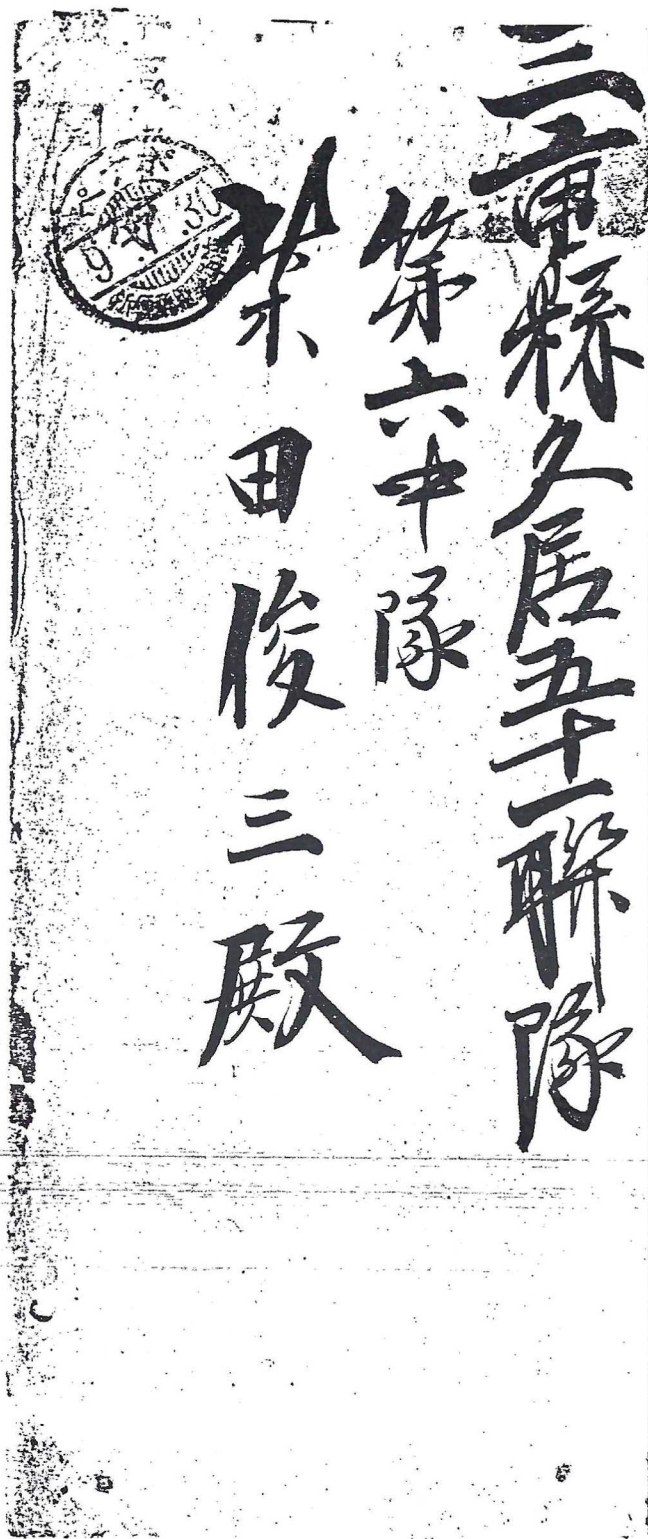 三重縣久居五十一聯隊
第六中隊
柴田俊三殿